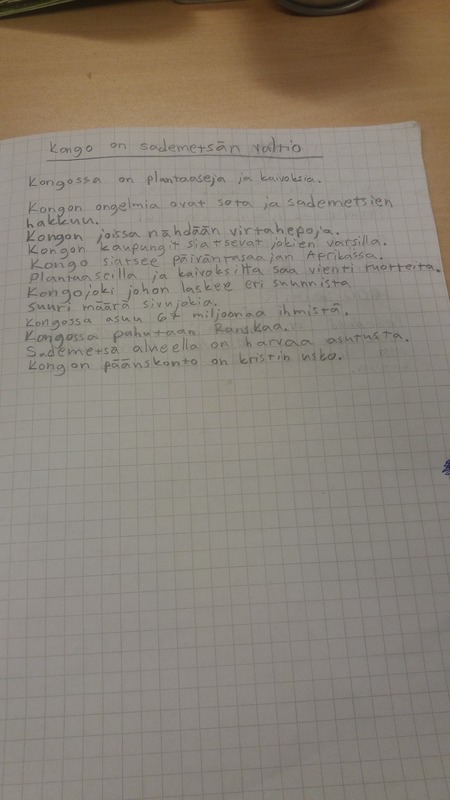 Kongo on sademetsän valtio
Kongossa on plantaaseja ja kaivoksia.
Kongon ongelmia ovat sota ja sademetsien
hakkuu.
Kongon joissa nähdään virtahepoja.
Kongon kaupungit siatsevat jokien varsilla.
Kongo siatsee päiväntasaajan Afrikassa.
Plantaaseilla ja kaivoksilta saa vienti tuotteita.
Kongojoki johon laskee eri suunnista
suuri määrä sivujokia.
Kongossa asuu 67 miljoonaa ihmistä.
Kongossa puhutaan Ranskaa.
Sademetsä alueella on harvaa asutusta.
Kongon pääuskonto on kristin usko.